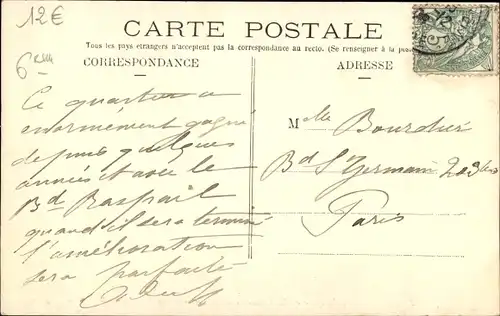 12€
6
CARTE POSTALE
Tous les pays étrangers n'acceptent pas la correspondance au recto. (Se renseigner à la poste
CORRESPONDANCE
ADRESSE
Ce quartier a
enormément gagné
depuis quelques
années et avec le
Bd Raspail
quand il sera terminé
l'amélioration
sera parfaite
Mlle Bourdier
Bd St Germain
Paris